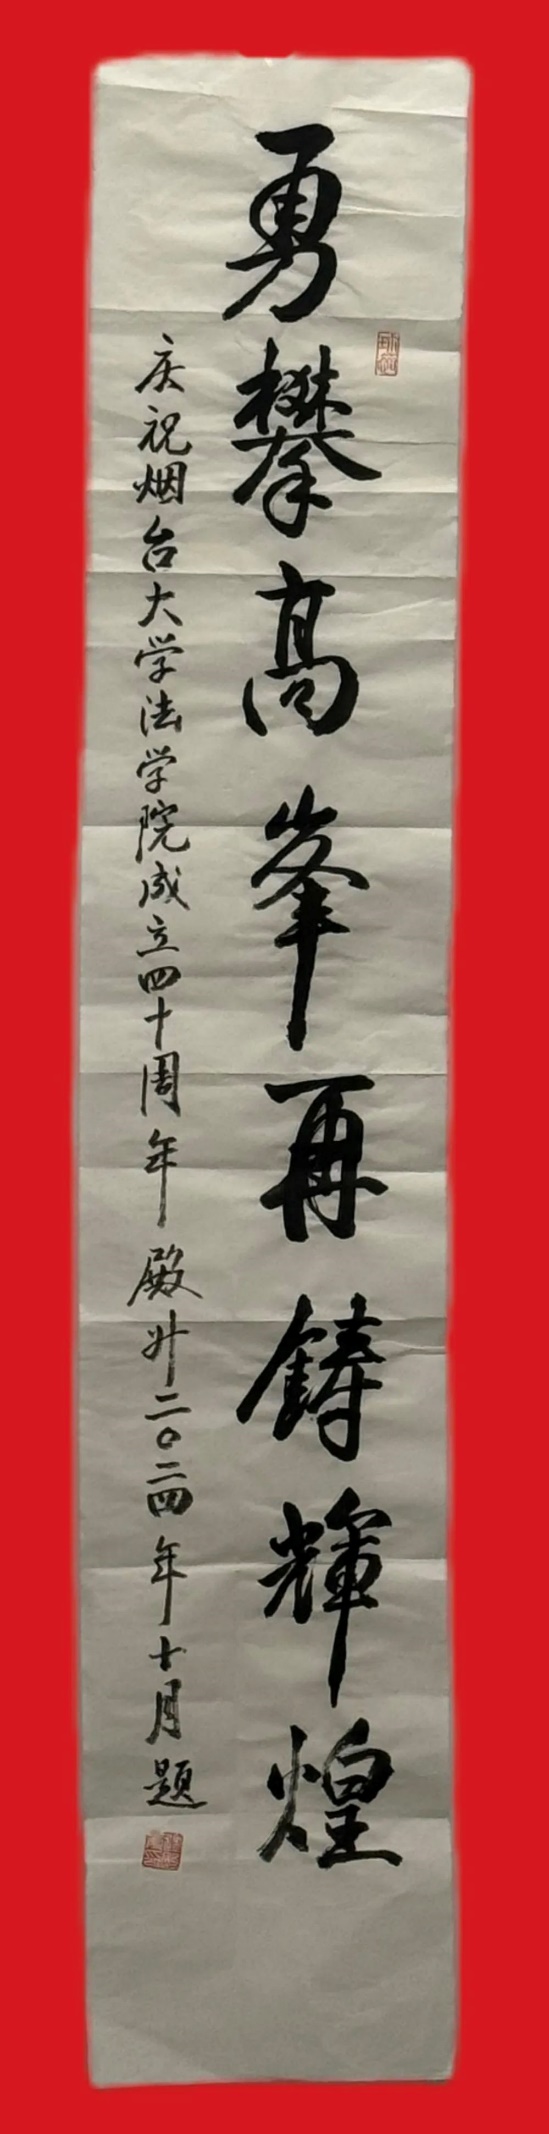 勇攀高峯再鑄輝煌
庆祝烟台大学法学院成立四十周年 殿廾二〇二四年十月题